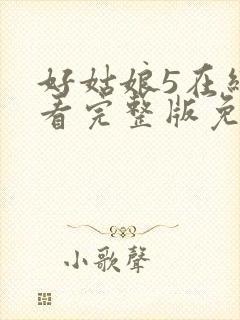 好姑娘5在
看完整版免
小歌聲